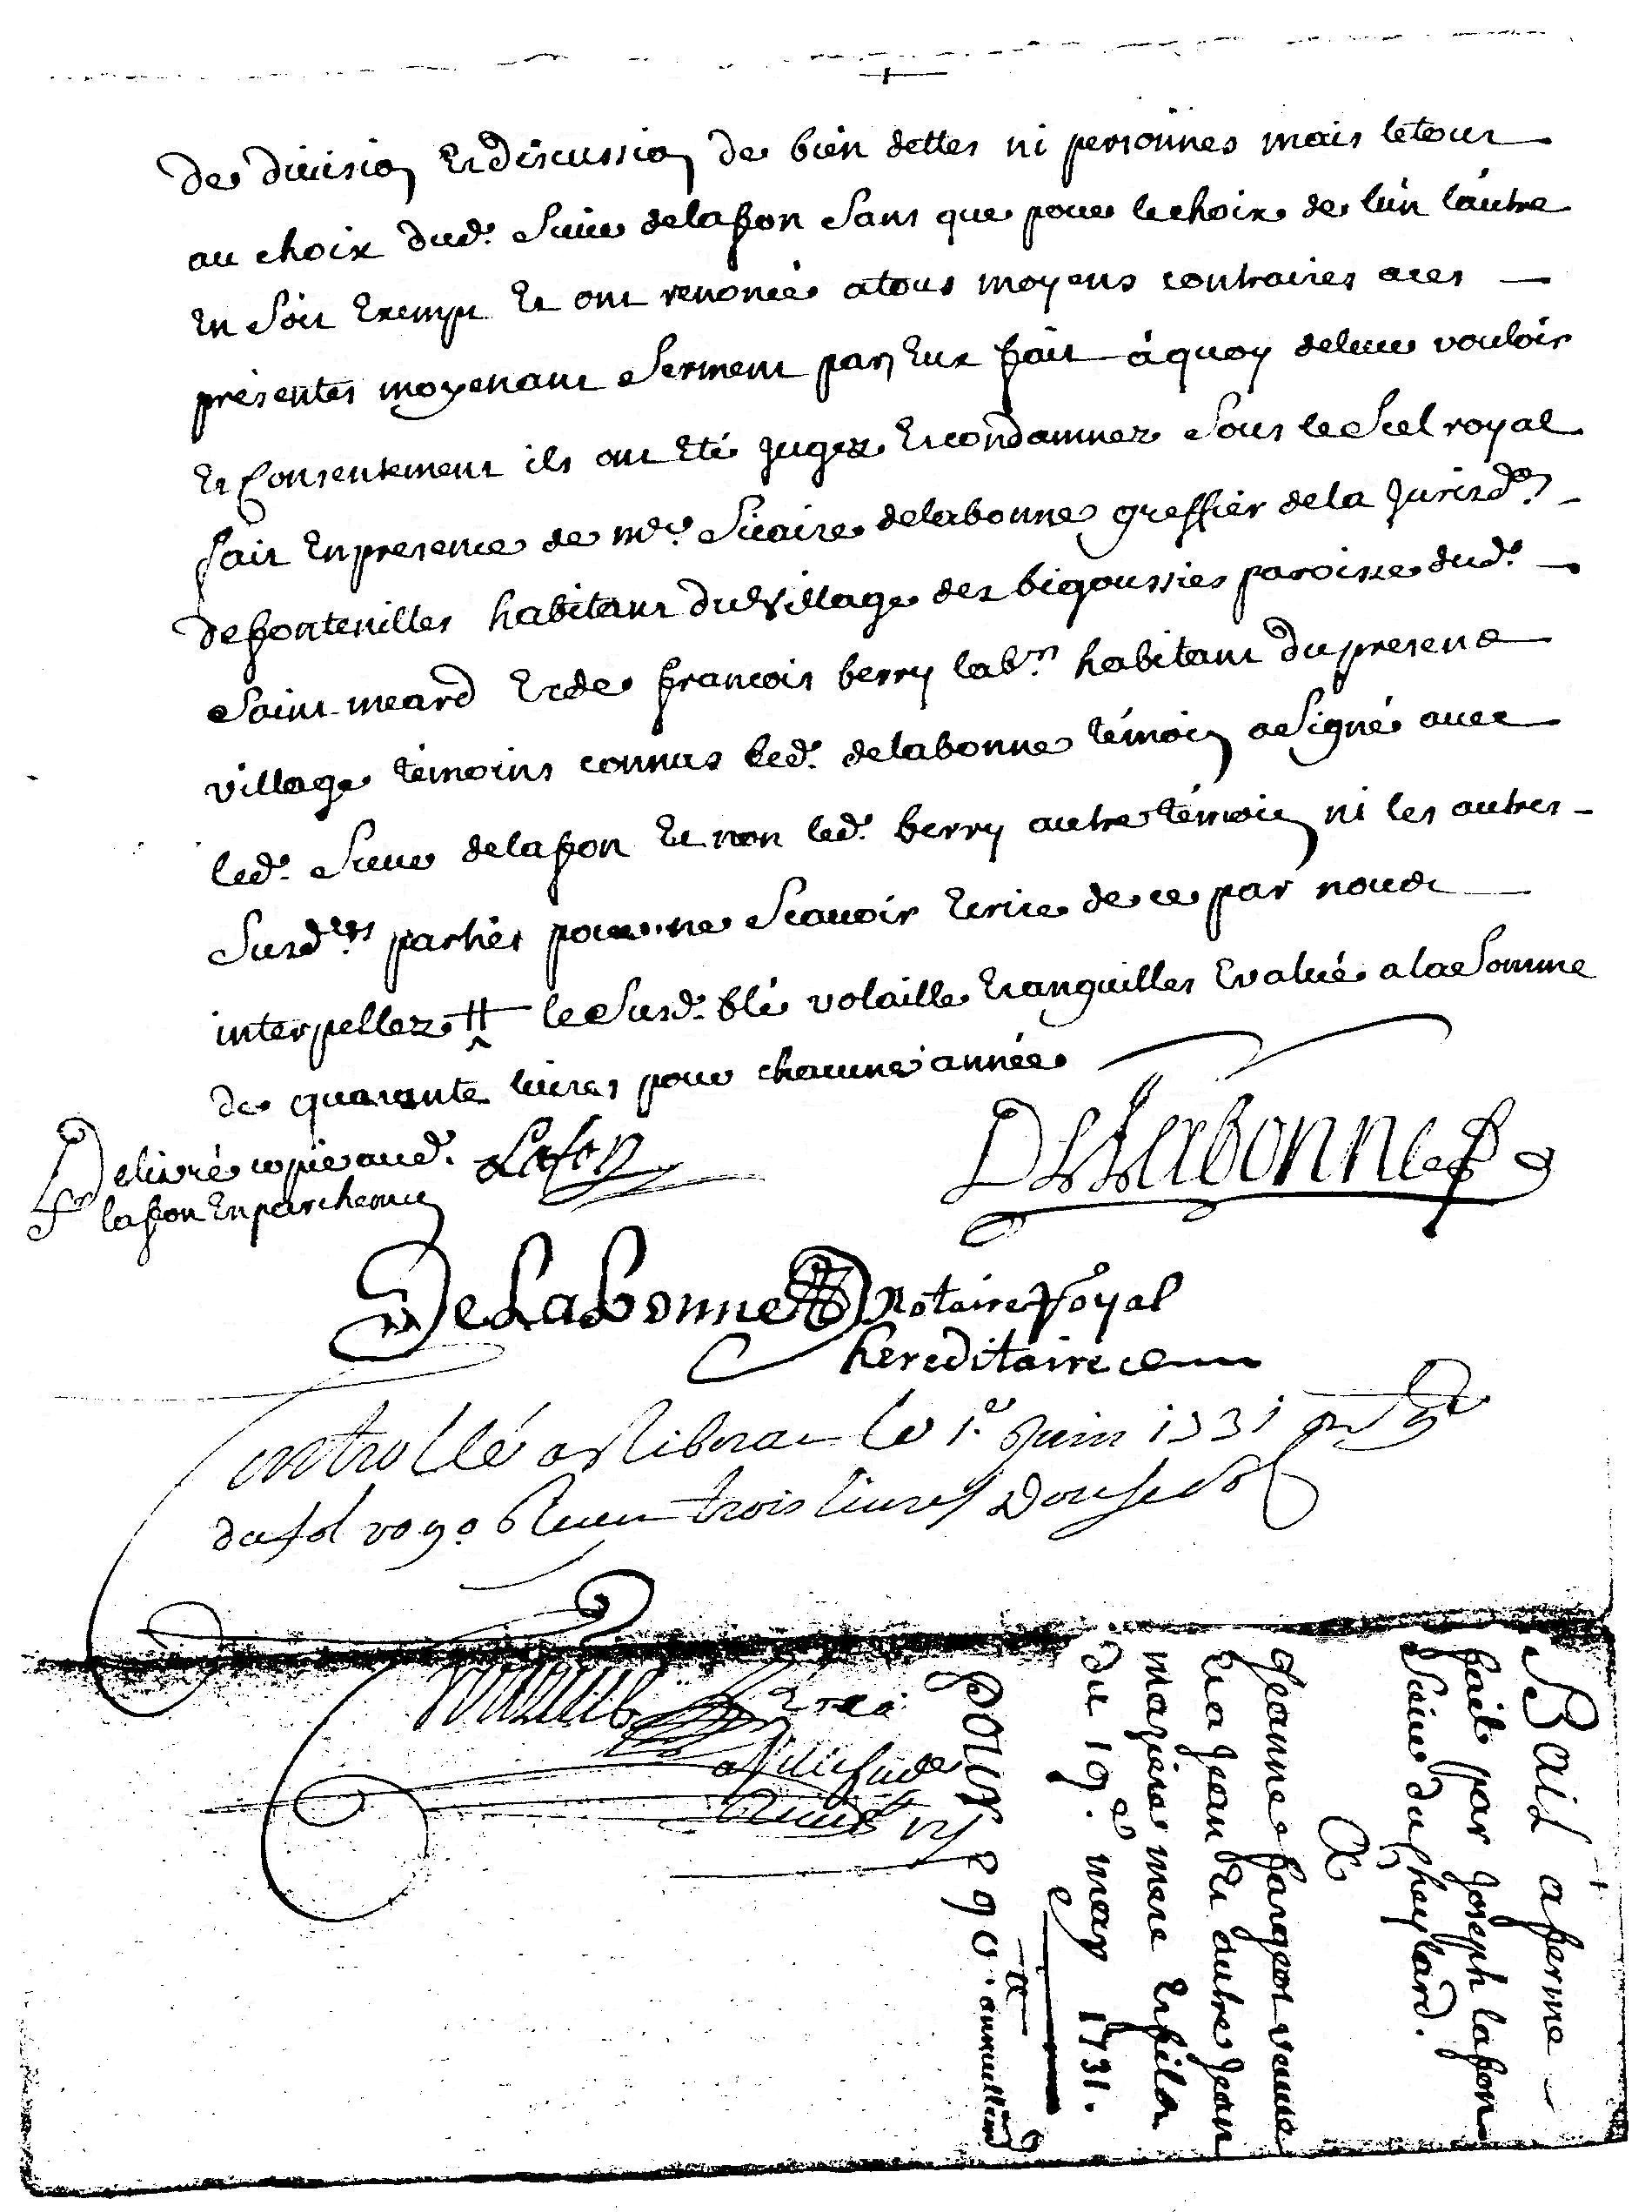 de division et discussion de bien dettes ni personnes mais le tout
au choix dud. Sieur delafon Sans que pour le choix de lún láutre
en Soit exempt et ont renoncé a tous moyens contraires a ces
présentes moyenant Serment par eux fait à quoy deleur vouloir
et Consentement ils ont été jugez et condamnez Sous le Scel royal
fait en presence de me. Sicaire delabonne greffier de la jurisdon.
de fontenilles habitant du village des bigoussies paroisse dud.
Saint meard et de francois berry labr. habitant du present
village témoins connus led. delabonne témoin a Signé avec
led. Sieur delafon et non led. berry autre témoin ni les autres
Susd.es parties pour ne Scavoir ecrire de ce par nous
interpellez # le Susd. blé volaille et anguilles evalué a la Somme
de quarante livres pour chacune année
Delivré copie aud. Lafon Delabonne
Sr lafon en parchemin
DeLabonne Notaire Royal
hereditaire
Controllé a Riberac le 1.e Juin 1731
du fol vo 90 Recu trois livres Douse sols
Bail a ferme
fait par joseph lafon
Sieur du cheylard.
A
jeanne fargeot veuve
et a jean et autre jean
mazieres mere et fils
du 19e. may 1731.
pour 40# annuellemt